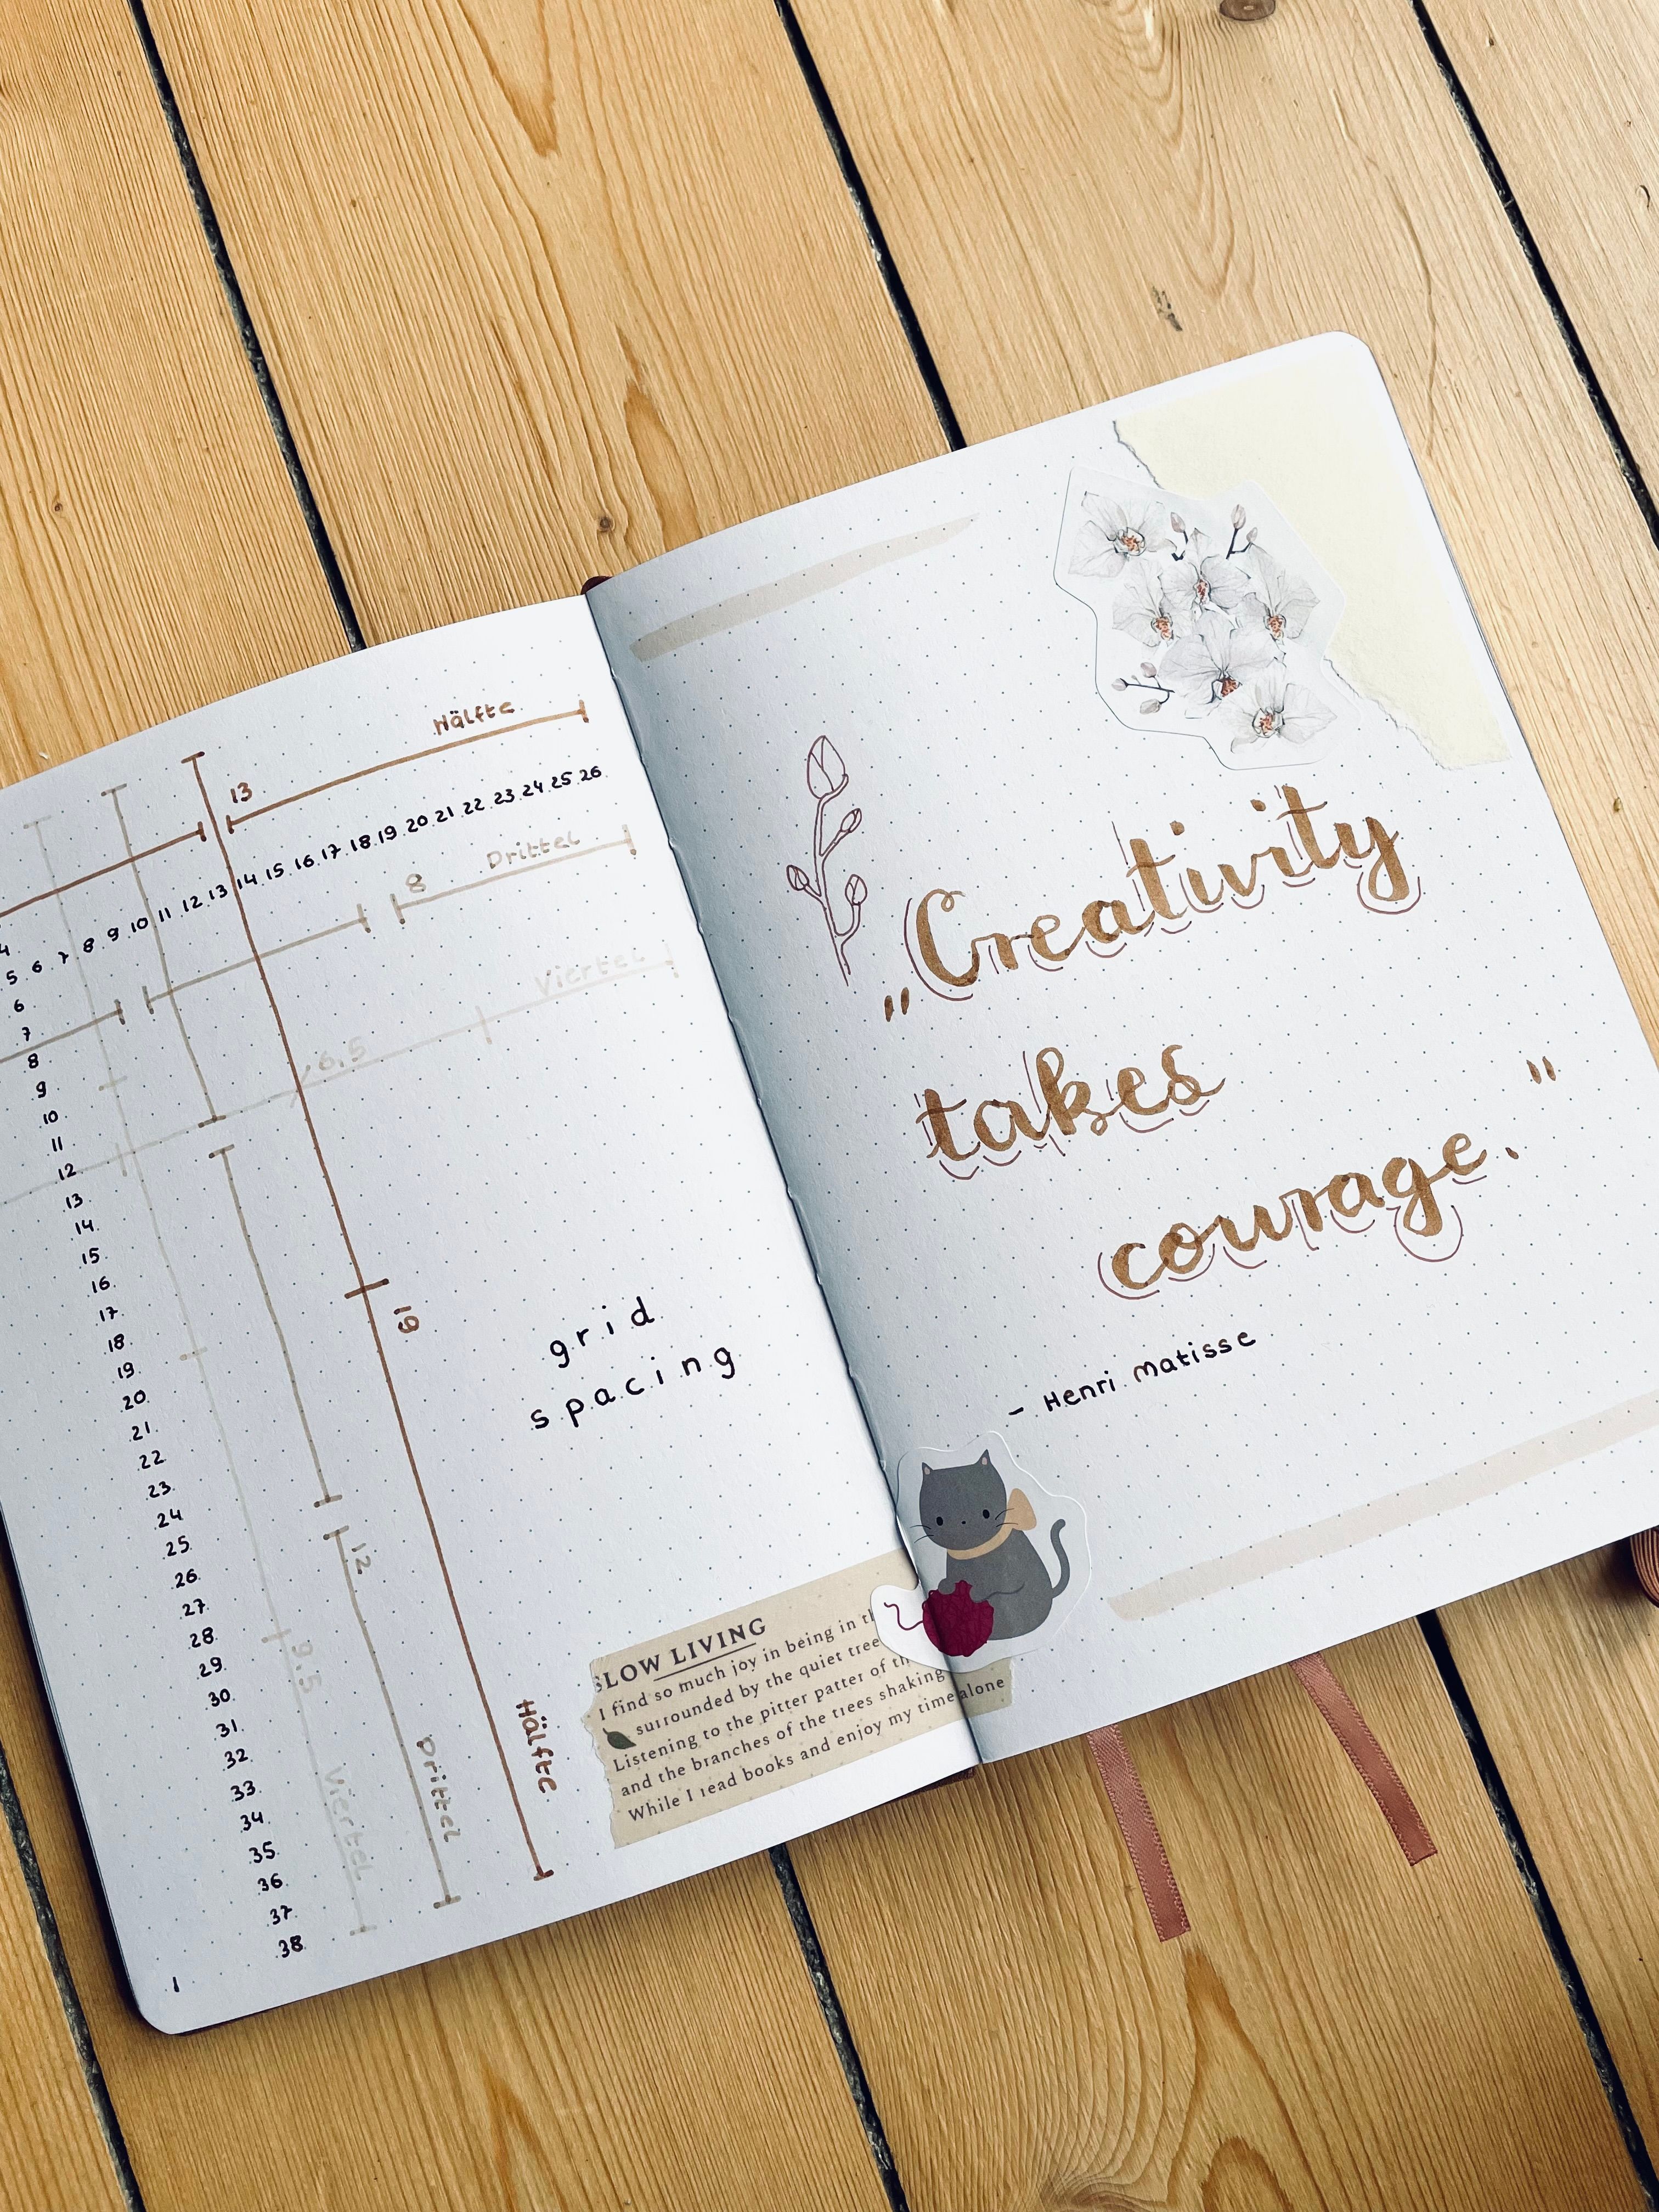 Hälfte
13
4
5 6 7 8 9 10 11 12 13 14 15 16 17 18 19 20 21 22 23 24 25 26
6
7
8
9
10
11
12
13
14
15
16
17
18
19
20
21
22
23
24
25
26
27
28
29
30
31
32
33
34
35
36
37
38
Drittel
8
Viertel
6.5
19
Hälfte
12
Drittel
9.5
Viertel
grid
spacing
SLOW LIVING
I find so much joy in being in th
surrounded by the quiet tree
Listening to the pitter patter of th
and the branches of the trees shaking
While I read books and enjoy my time alone
1
„Creativity
takes
courage."
- Henri Matisse